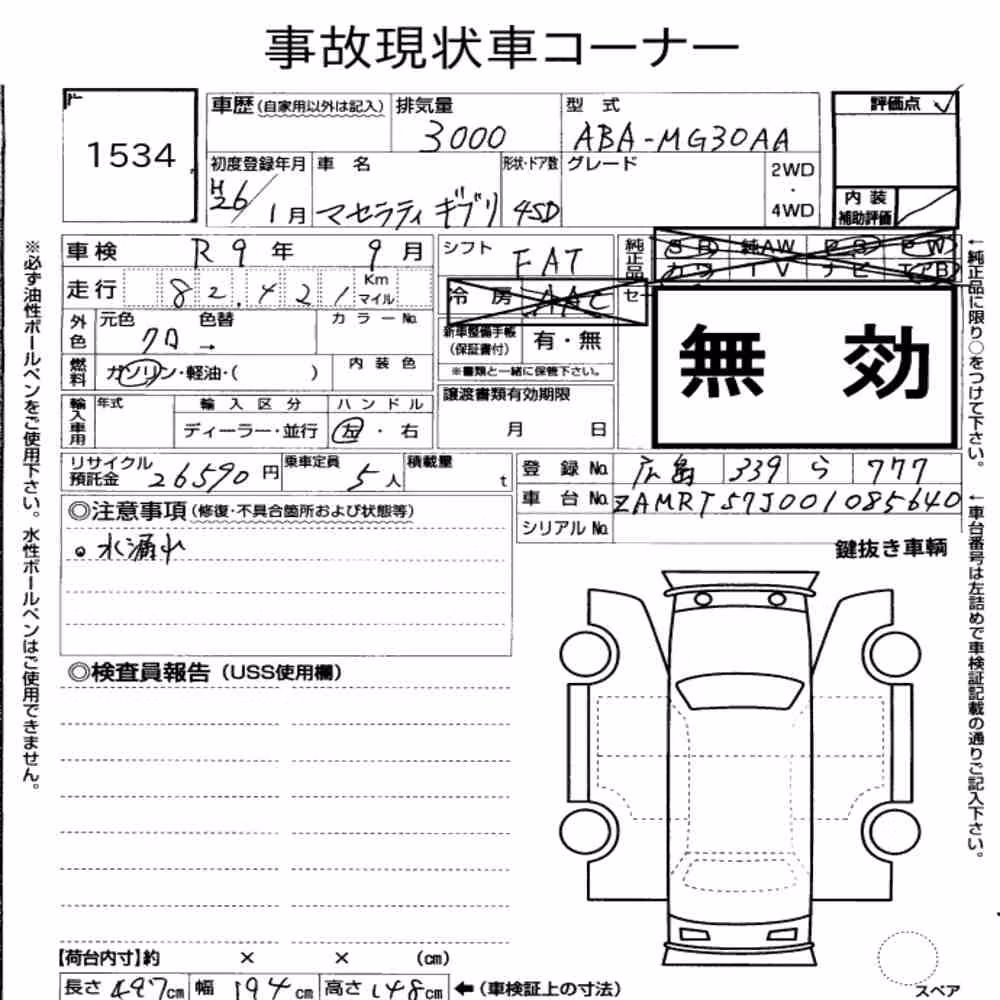 事故現状車コーナー
1534
車歴(自家用以外は記入)
排気量
3000
型 式
ABA-MG30AA
評価点
初度登録年月
H26/1月
車 名
マセラティ ギブリ
形状・ドア数
4SD
グレード
2WD
・
4WD
内 装
補助評価
車検 R9年 9月
シフト
FAT
純正品
SR 純AW PS PW
カワ TV ナビ エアB
走行 82,421 Km
マイル
冷 房 AAC
セー
外色
元色
クロ →
色替
カラーNo.
新車整備手帳
(保証書付)
有・無
※書類と一緒に保管下さい。
無 効
燃料
ガソリン・軽油・( )
内 装 色
譲渡書類有効期限
月 日
輸入車用
年式
輸 入 区 分
ディーラー・並行
ハンドル
左・右
リサイクル
預託金
26590円
乗車定員
5人
積載量
t
登 録 No. 広島 339 ら 777
車 台 No. ZAMRT57J001085640
シリアル No.
◎注意事項(修復・不具合箇所および状態等)
。水漏れ
鍵抜き車輌
◎検査員報告(USS使用欄)
【荷台内寸】約 × × (cm)
長さ 497cm 幅 194cm 高さ 148cm ←(車検証上の寸法)
スペア
※必ず油性ボールペンをご使用下さい。水性ボールペンはご使用できません。
←純正品に限り○をつけて下さい。
←車台番号は左詰めで車検証記載の通りご記入下さい。